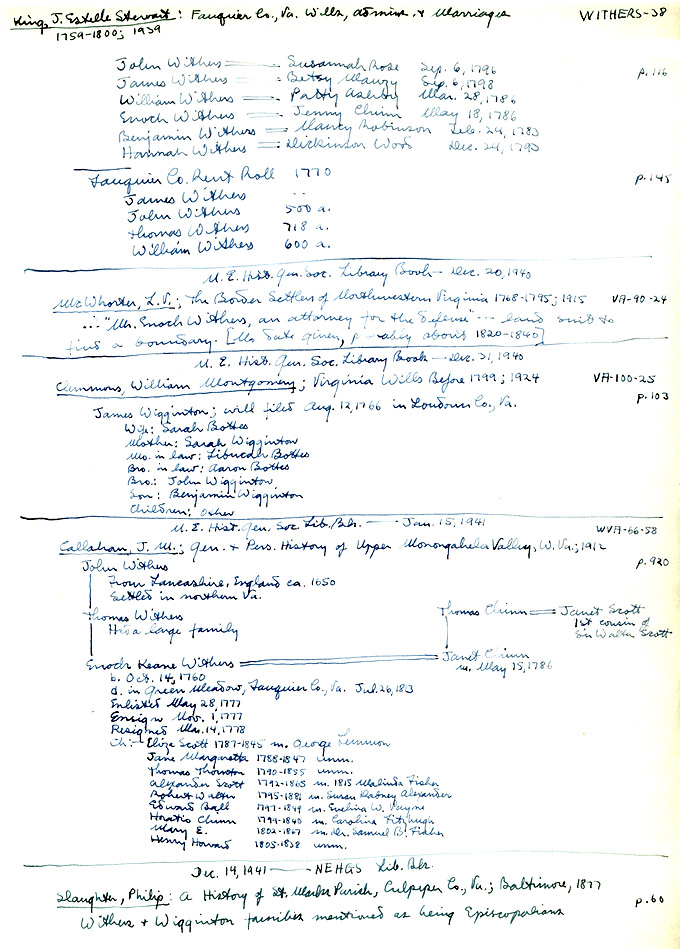 King, J. Estelle Stewart: Fauquier Co., Va. Wills, admins. & Marriages WITHERS-38
1759-1800; 1939
John Withers == Susannah Rose Sep. 6, 1796 p. 116
James Withers == Betsy Mauzy Sep. 6, 1798
William Withers == Patty Ashby Mar. 28, 1786
Enoch Withers == Jenny Chinn May 18, 1786
Benjamin Withers == Nancy Robinson Feb. 24, 1783
Hannah Withers == Dickinson Wood Dec. 24, 1793
Fauquier Co. Rent Roll 1770 p. 145
James Withers ..
John Withers 500 a.
Thomas Withers 718 a.
William Withers 600 a.
N. E. Hist. Gen. Soc. Library Book - Dec. 20, 1940
McWhorter, L.V.; The Border Settlers of Northwestern Virginia 1768-1795; 1915 VA-90-24
... "Mr. Enoch Withers, an attorney for the defense" ... land suit to
find a boundary. [No date given, probably about 1820-1840]
N. E. Hist. Gen. Soc. Library Book - Dec. 31, 1940
Clemmons, William Montgomery; Virginia Wills Before 1799; 1924 VA-100-25
p. 103
James Wigginton; will filed Aug. 12, 1766 in Loudoun Co., Va.
Wife: Sarah Bottes
Mother: Sarah Wigginton
Mo. in law: Bottes
Bro. in law: Aaron Bottes
Bro.: John Wigginton
Son: Benjamin Wigginton
Children: Other
N. E. Hist. Gen. Soc. Lib. Bk. - Jan. 15, 1941 WVA-66-58
Callahan, J. M.; Gen. & Pers. History of Upper Monongahela Valley, W. Va.; 1912
John Withers p. 920
From Lancashire, England ca. 1650
Settled in northern Va.
Thomas Withers Thomas Chinn == Janet Scott
Had a large family 1st cousin of
Sir Walter Scott
Enoch Keane Withers == Janet Chinn
b. Oct. 14, 1760 m. May 15, 1786
d. in Green Meadow, Fauquier Co., Va. Jul. 26, 1813
Enlisted May 28, 1777
Ensign Nov. 1, 1777
Resigned Mar. 14, 1778
Ch:- Eliza Scott 1787-1845 m. George Lemmon
Jane Margaretta 1788-1847 unm.
Thomas Thornton 1790-1855 unm.
Alexander Scott 1792-1865 m. 1815 Malinda Fisher
Robert Walter 1795-1881 m. Susan Dabney Alexander
Edward Ball 1797-1849 m. Evelina W. Payne
Horatio Chinn 1799-1840 m. Carolina Fitzhugh
Mary E. 1802-1867 m. Dr. Samuel B. Fisher
Henry Howard 1805-1838 unm.
Dec. 14, 1941 - NEHGS Lib. Bk.
Slaughter, Philip: A History of St. Marks Parish, Culpeper Co., Va.; Baltimore, 1877
p. 60
Withers & Wigginton families mentioned as being Episcopalians